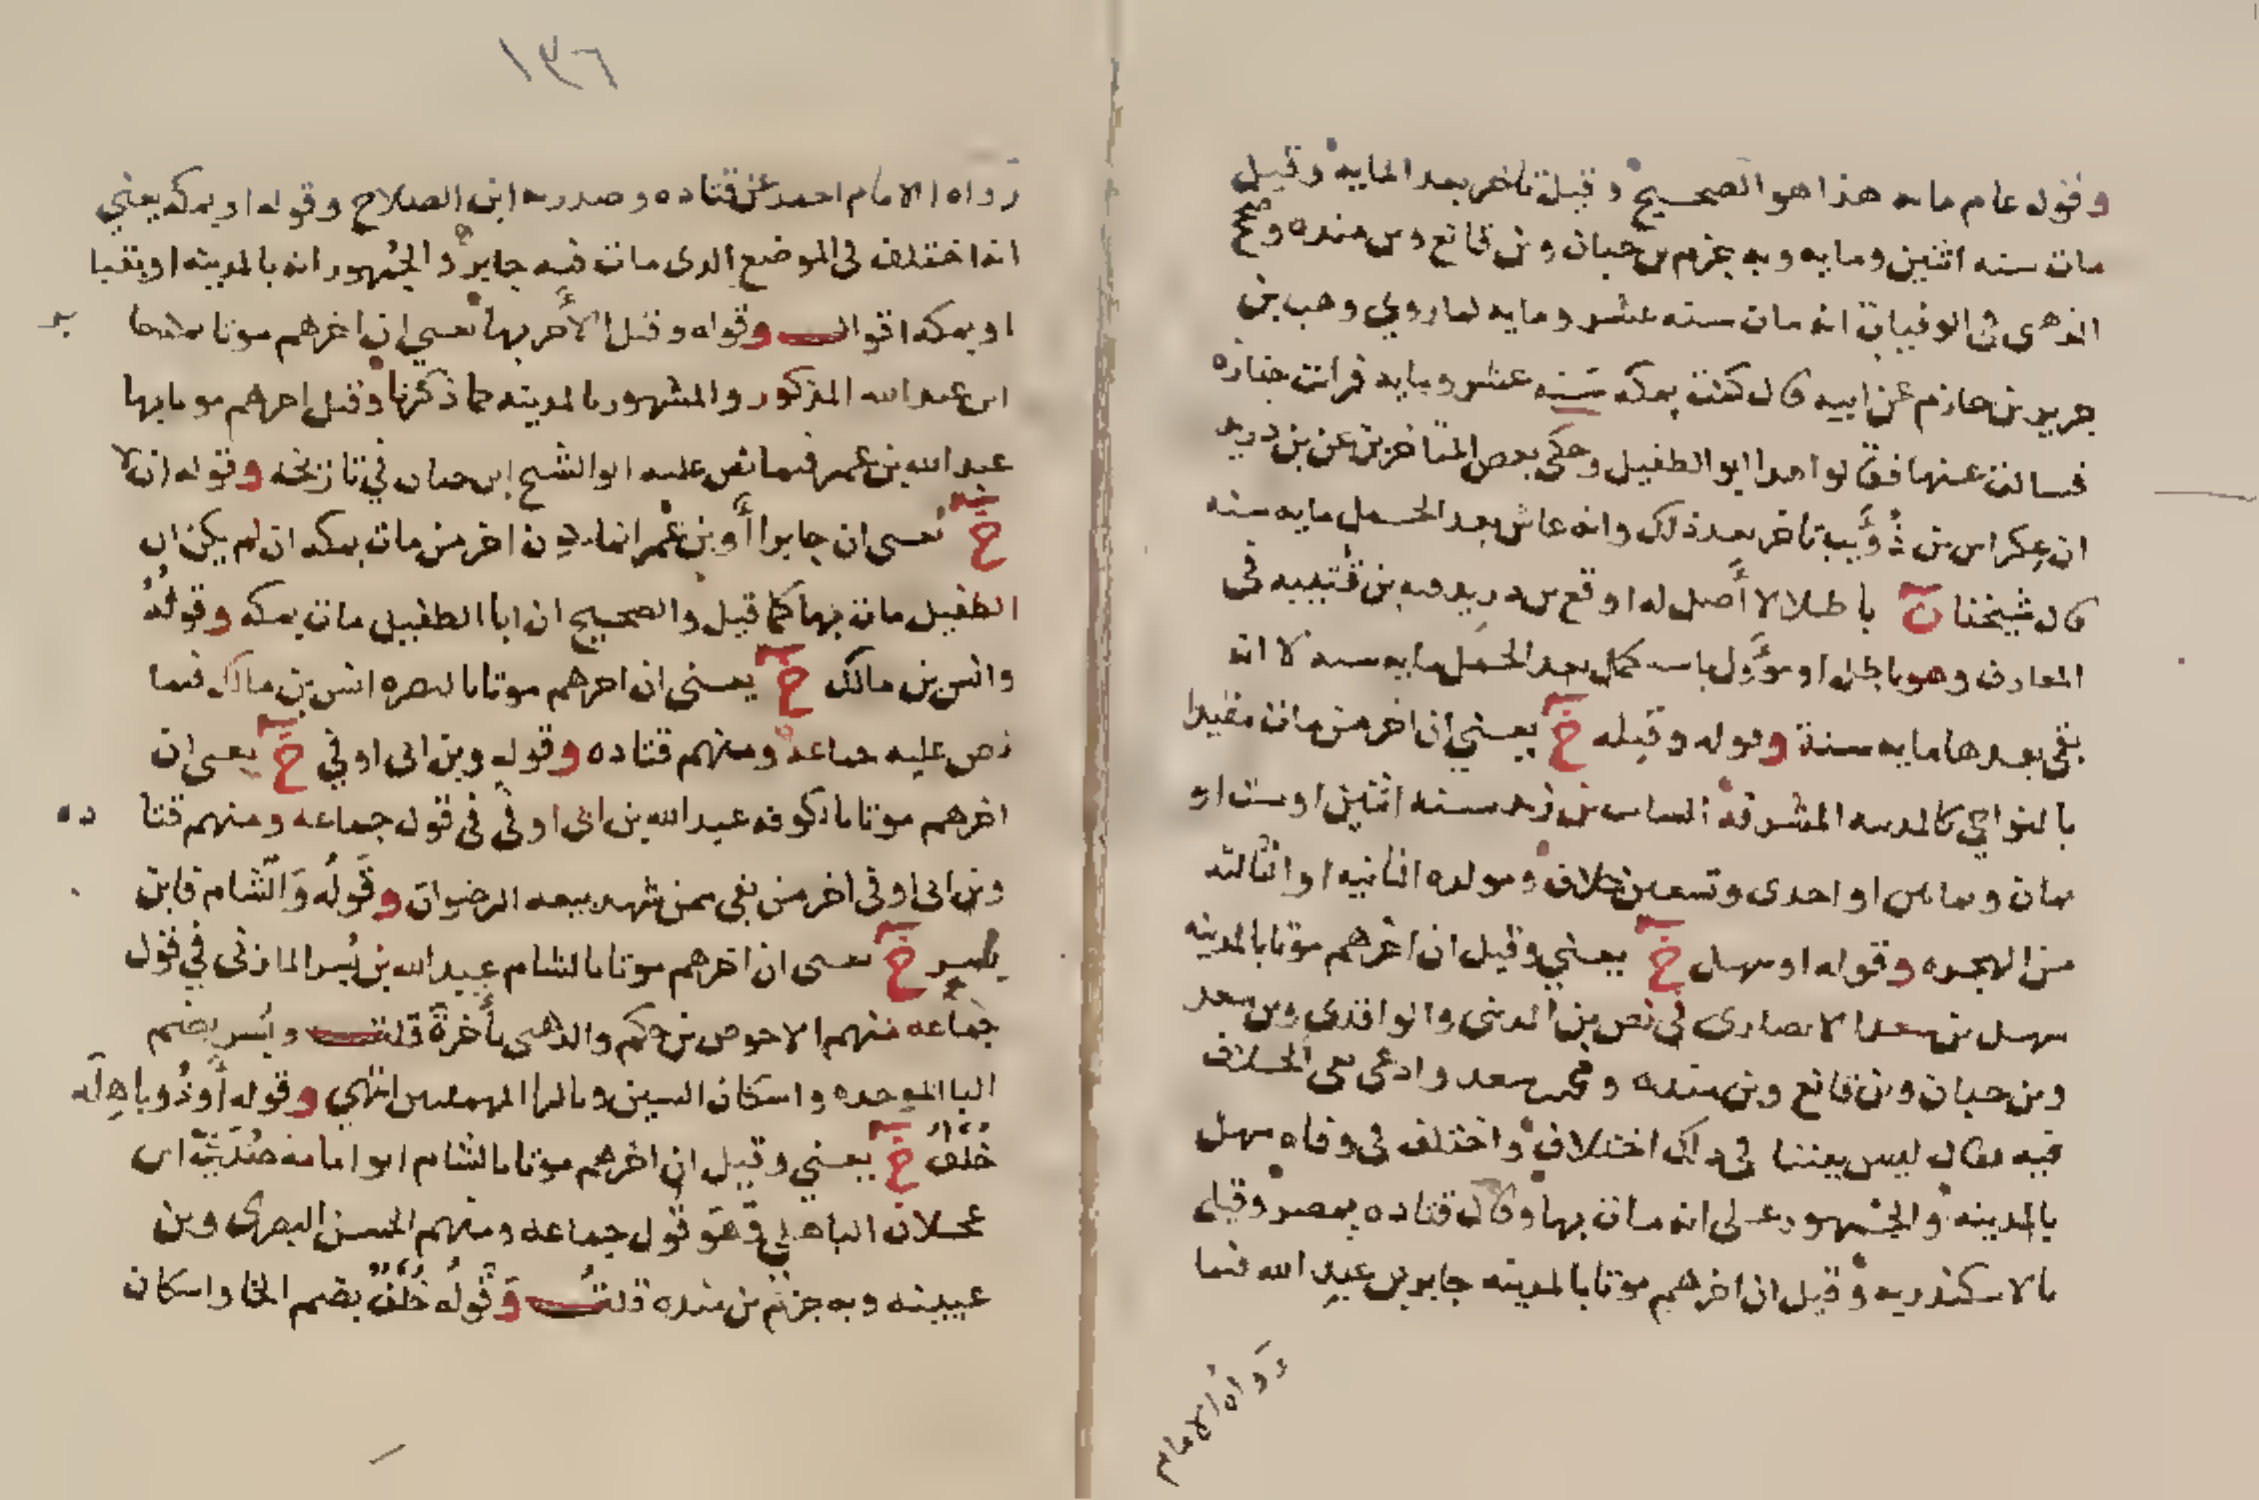 وقوله عام مايه هذا هو الصحيح وقيل تاخر بعد المايه وقيل
مات سنه اثنين ومايه وبه جزم بن حبان وبن قانع وبن منده وصحح
الذهبى فى الوفيات انه مات سنه عشر ومايه لما روي وهب بن
جرير بن حازم عن ابيه قال كنت بمكه سنه عشر ومايه فرايت جنازه
فسالت عنها فقالوا هذا ابو الطفيل وحكى بعض المتاخرين عن بن دريد
ان عكراس بن ذُؤَيب تاخر بعد ذلك وانه عاش بعد الجمل مايه سنه
قال شيخنا ن باطل لا أصل له اوقع بن دريد فيه بن قتيبه فى
المعارف وهو باطل او مؤَول بانه كمل بعد الجمل مايه سنه لا انه
بقى بعدها مايه سنة وقوله وقبله خ يعني ان اخر من مات مقيدا
بالنواحي كالمدينه المشرفه السايب بن يزيد سنه اثنين او ست او
ثمان وثمانين او احدى وتسعين خلاف ومولده الثانيه او الثالثه
من الهجره وقوله او سهل خ يعني وقيل ان اخرهم موتا بالمدينه
سهل بن سعد الانصارى فى نص بن المدينى والواقدى وبن سعد
وبن حبان وبن قانع وبن منده ومحمد بن سعد وادعى نفى الخلاف
فيه فقال ليس بيننا فى ذلك اختلاف واختلف فى وفاه سهل
بالمدينه والجمهور على انه مات بها وقال قتاده بمصر وقيل
بالاسكندريه وقيل ان اخرهم موتا بالمدينه جابر بن عبد الله فيما
رواه الامام
١٣٦
رواه الامام احمد عن قتاده وصدر به ابن الصلاح وقوله او بمكه يعني
انه اختلف فى الموضع الذى مات فيه جابر والجُمهور انه بالمدينه او بقبا
او بمكه اقوال وقوله وقيل الأَخر بها يعنى ان اخرهم موتا بمكه
ابن عبد الله المذكور والمشهور بالمدينه كما ذكرنا وقيل اخرهم موتا بها
عبد الله بن عمر فيما نص عليه ابو الشيخ ابن حبان في تاريخه وقوله ان لا
خ يعنى ان جابرا أَو بن عُمر انما يكون اخر من مات بمكه ان لم يكن ابو
الطفيل مات بها كما قيل والصحيح ان ابا الطفيل مات بمكه وقولُهُ
وانس بن مالك خ يعنى ان اخرهم موتا بالبصره انس بن مالك فيما
نص عليه جماعه ومنهم قتاده وقوله وبن ابى اوفي خ يعنى ان
اخرهم موتا بالكوفه عبد الله بن ابى اوفى فى قول جماعه ومنهم قتا ده
وبن ابى اوفى اخر من بقى ممن شهد بيعه الرضوان وقَولُه وَالشام فابن
بسر خ يعنى ان اخرهم موتا بالشام عبد الله بن بُسر المازنى في قول
جماعه منهم الاحوص بن حكيم والذهبى بأَخرةً قلت وبُسر بضم
البا الموحده واسكان السين وبالرا المهملتين انتهي وقوله أَو ذُو باهِلَه
خُلْفٌ خ يعني وقيل ان اخرهم موتا بالشام ابو امامه صُدَيّ بن
عجلان الباهلي وهَو قول جماعه ومنهم الحسن البصرى وبن
عيينه وبه جزم بن منده قلت وَقَولُه خُلْفٌ بضم الخا واسكان